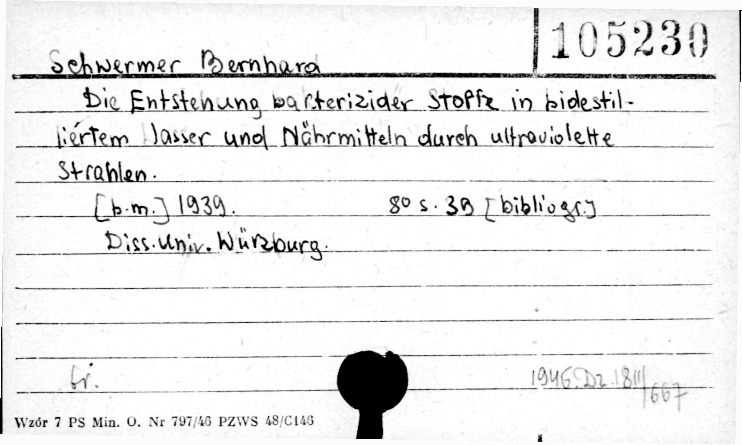 105230
Schwermer Bernhard
Die Entstehung bakterizider Stoffe in bidestil-
liertem Wasser und Nährmitteln durch ultraviolette
Strahlen.
[b.m.] 1939. 8° s. 39 [bibliogr.]
Diss. Univ. Würzburg.
fr. 1946. Dz. 1811/667
Wzór 7 PS Min. O. Nr 797/46 PZWS 48/C146